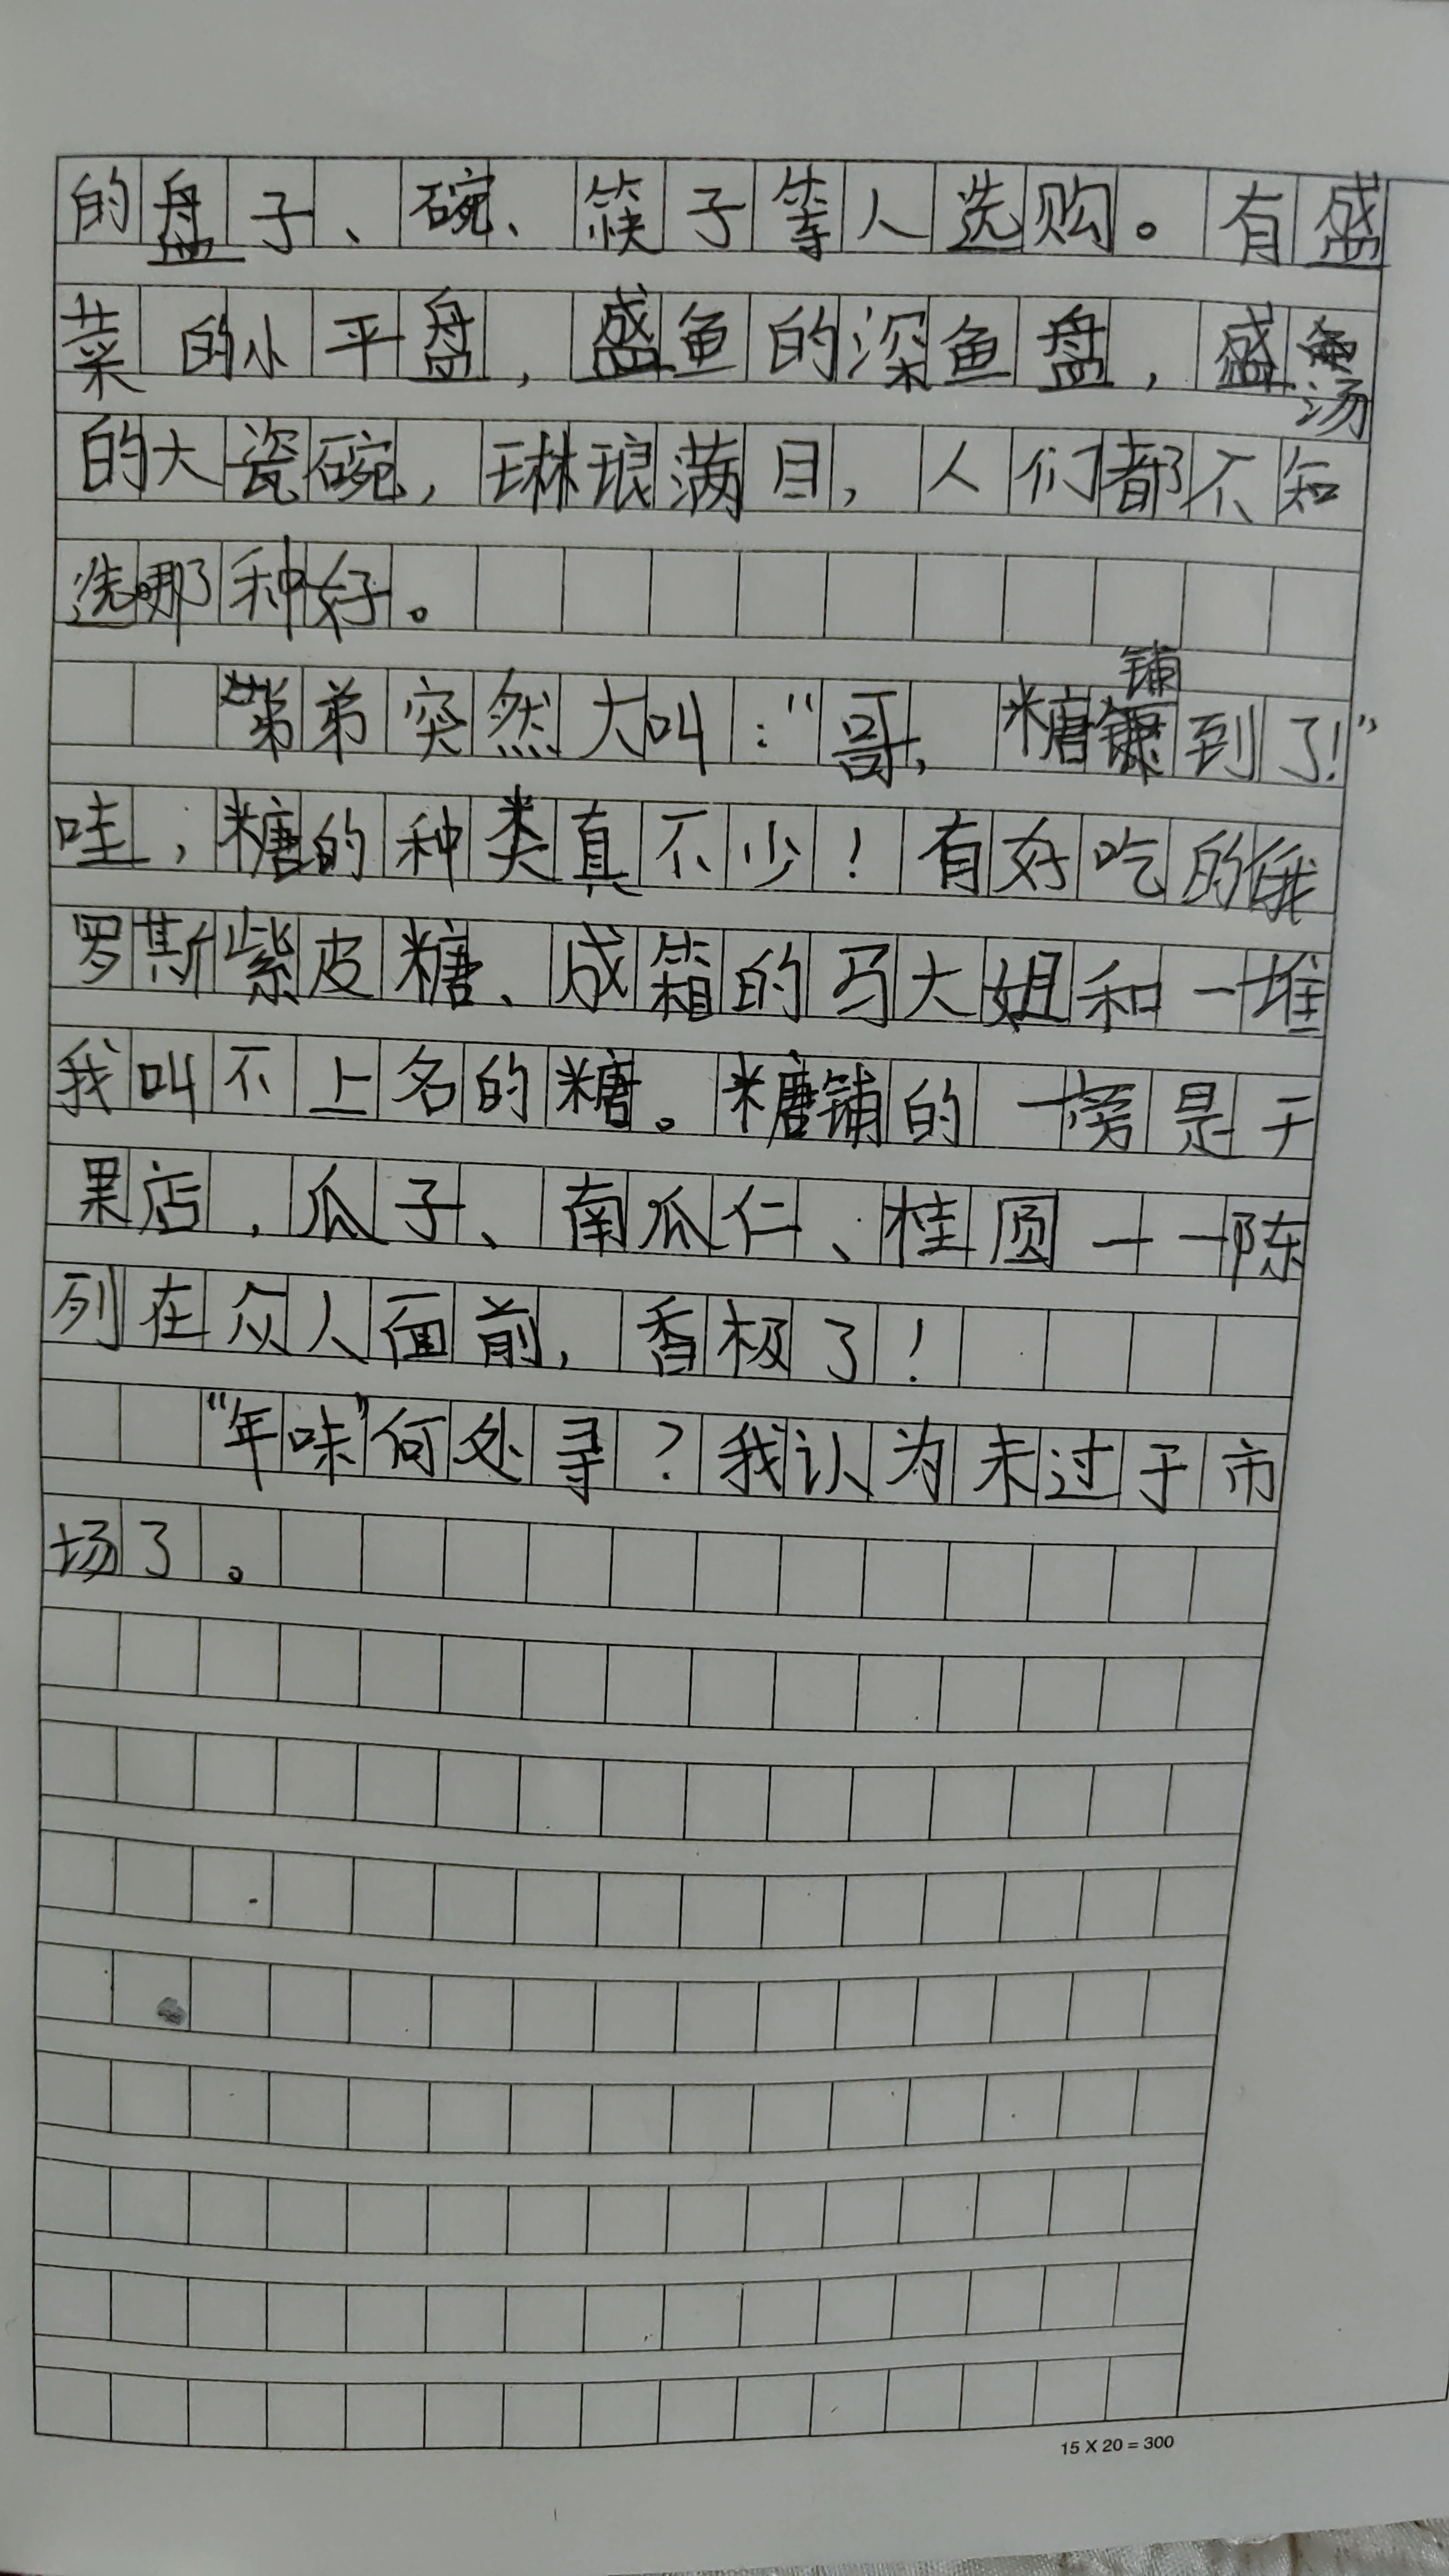 的盘子、碗、筷子等人选购。有盛
菜的小平盘，盛鱼的深鱼盘，盛汤
的大瓷碗，琳琅满目，人们都不知
选哪种好。
弟弟突然大叫：“哥，糖铺到了！”
哇，糖的种类真不少！有好吃的俄
罗斯紫皮糖、成箱的马大姐和一堆
我叫不上名的糖。糖铺的一旁是干
果店，瓜子、南瓜仁、桂圆一一陈
列在众人面前，香极了！
“年味”何处寻？我认为未过于市
场了。
15 X 20 = 300